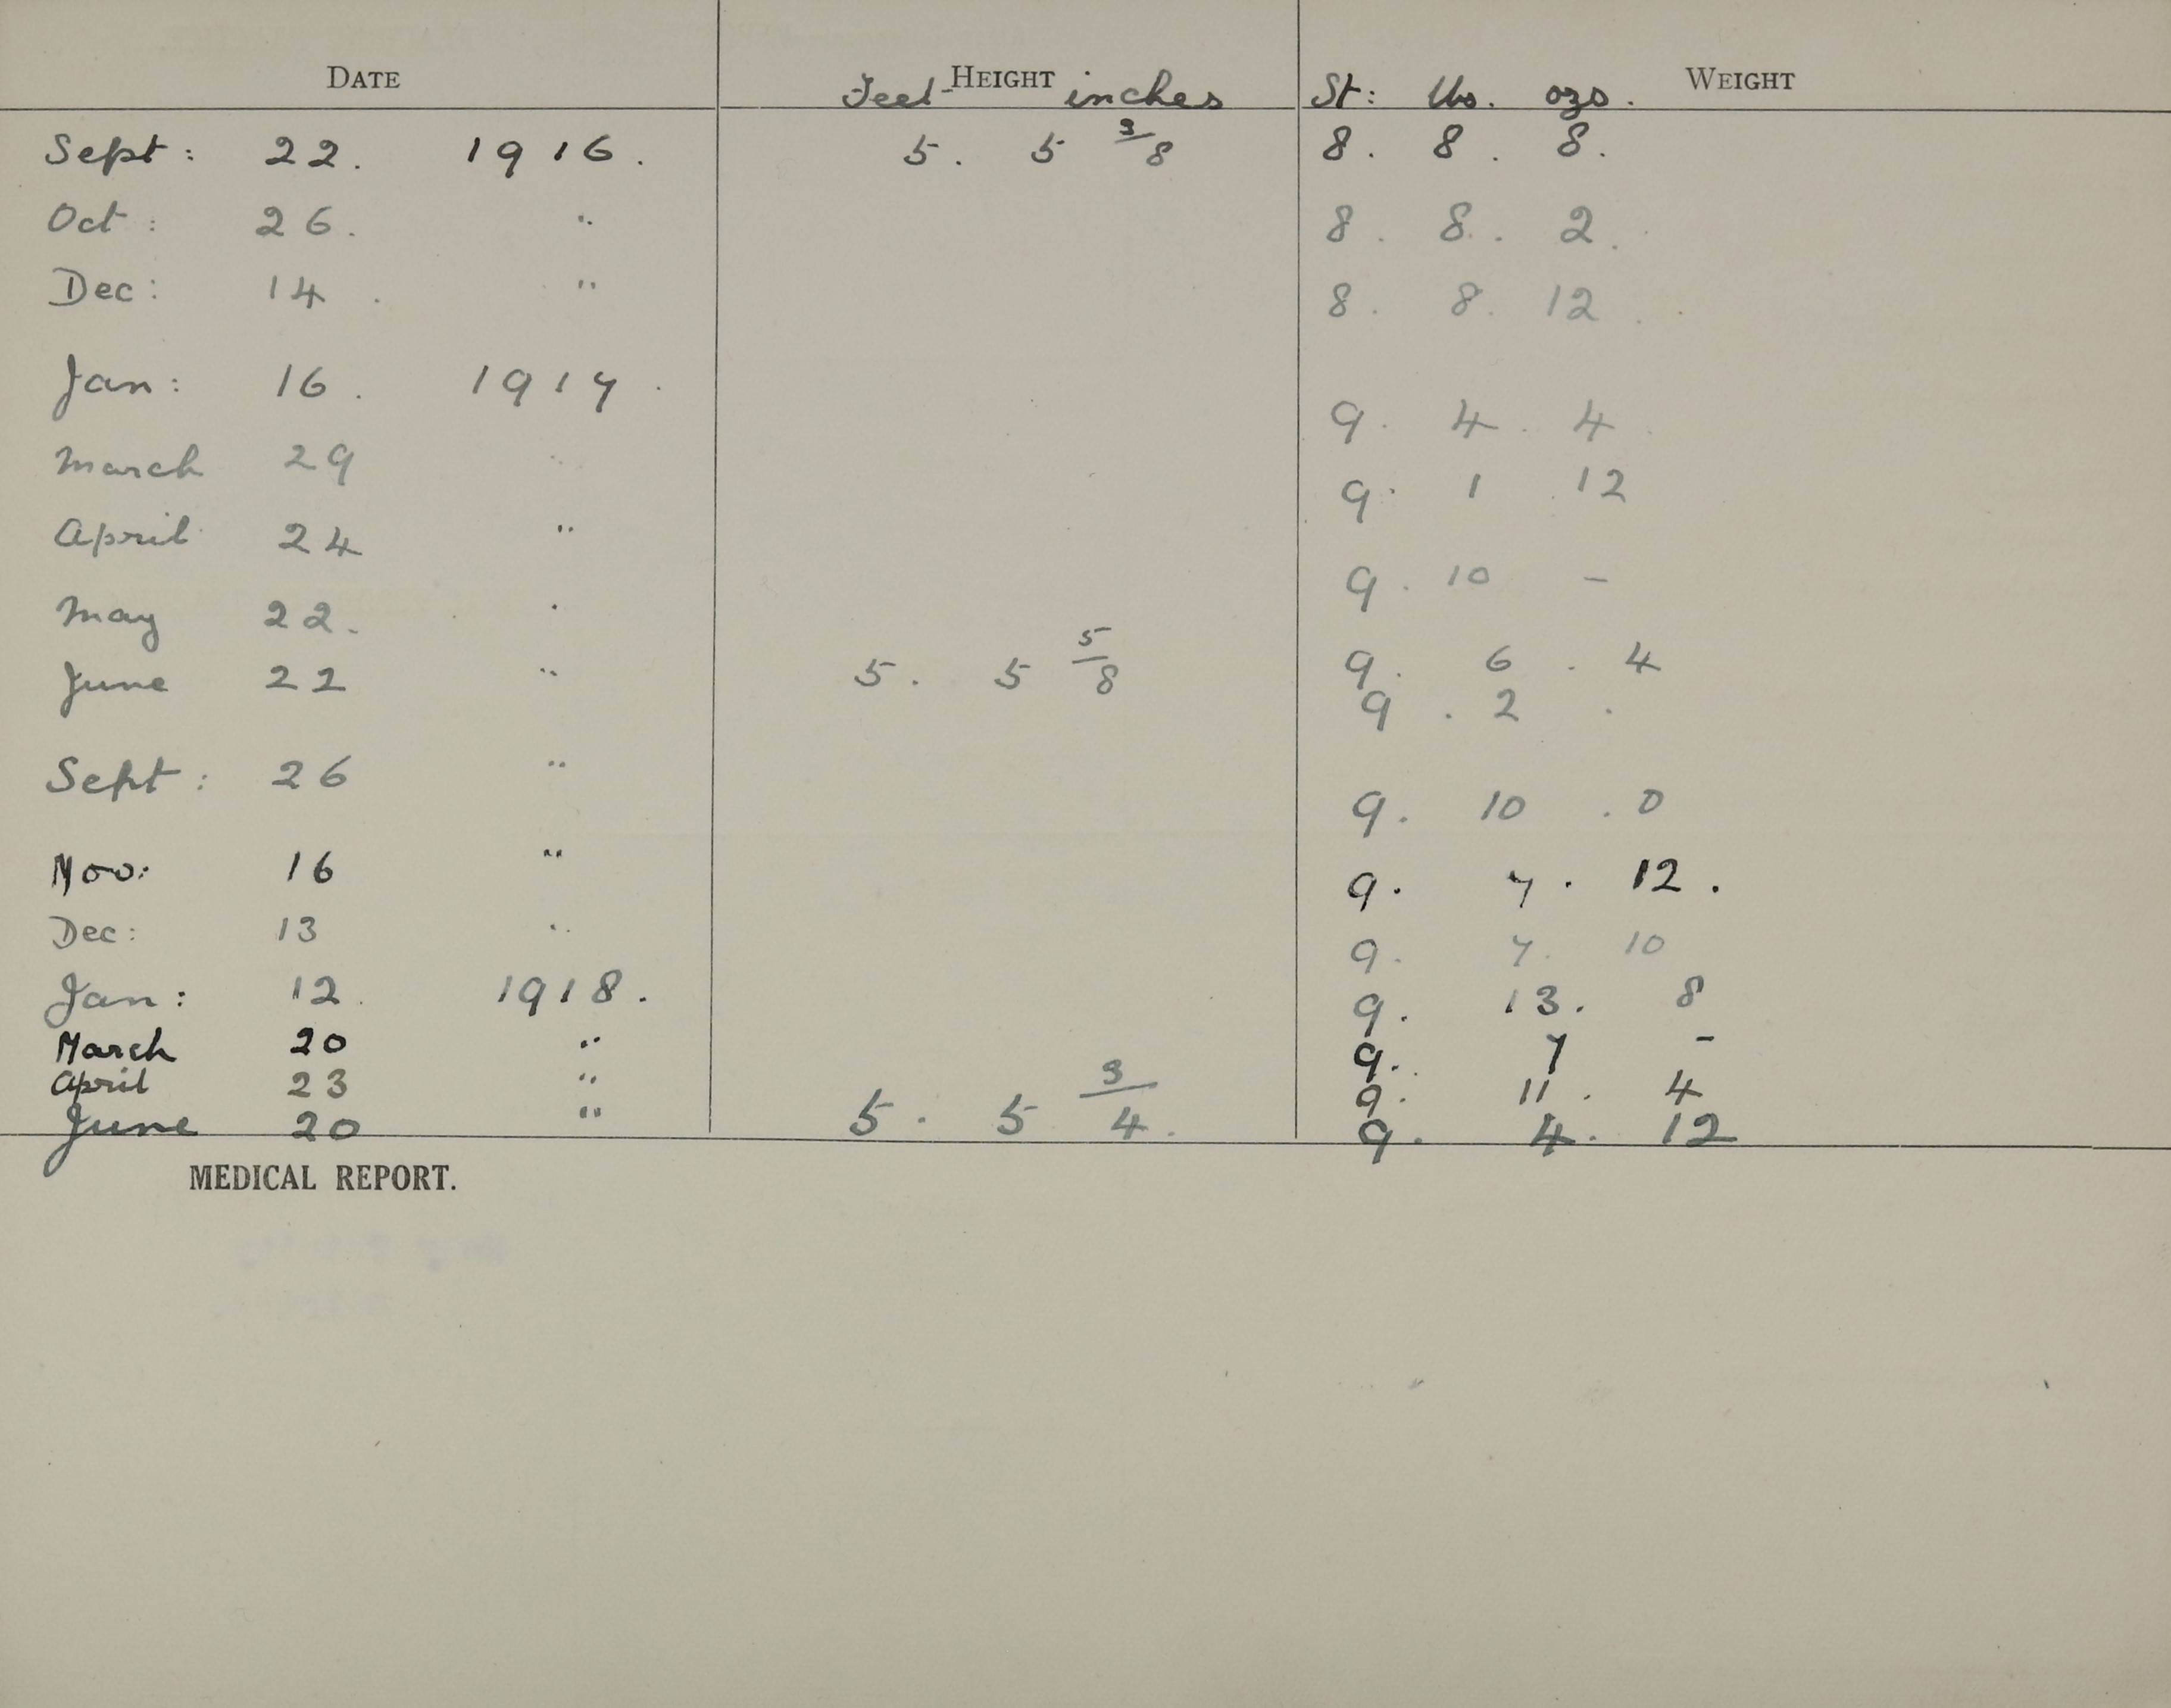 DATE HEIGHT WEIGHT
Feet inches St: lbs. ozs.
Sept: 22. 1916. 5. 5 3/8 8. 8. 8.
Oct: 26. " 8. 8. 2.
Dec: 14. " 8. 8. 12.
Jan: 16. 1917. 9. 4. 4
March 29 " 9. 1 12
April 24 " 9. 10 -
May 22. " 9. 6. 4
June 22 " 5. 5 5/8 9. 2 .
Sept: 26 " 9. 10. 0
Nov: 16 " 9. 7. 12.
Dec: 13 " 9. 7. 10
Jan: 12. 1918. 9. 13. 8
March 20 " 9. 7 -
April 23 " 9. 11. 4
June 20 " 5. 5 3/4. 9. 4. 12
MEDICAL REPORT.